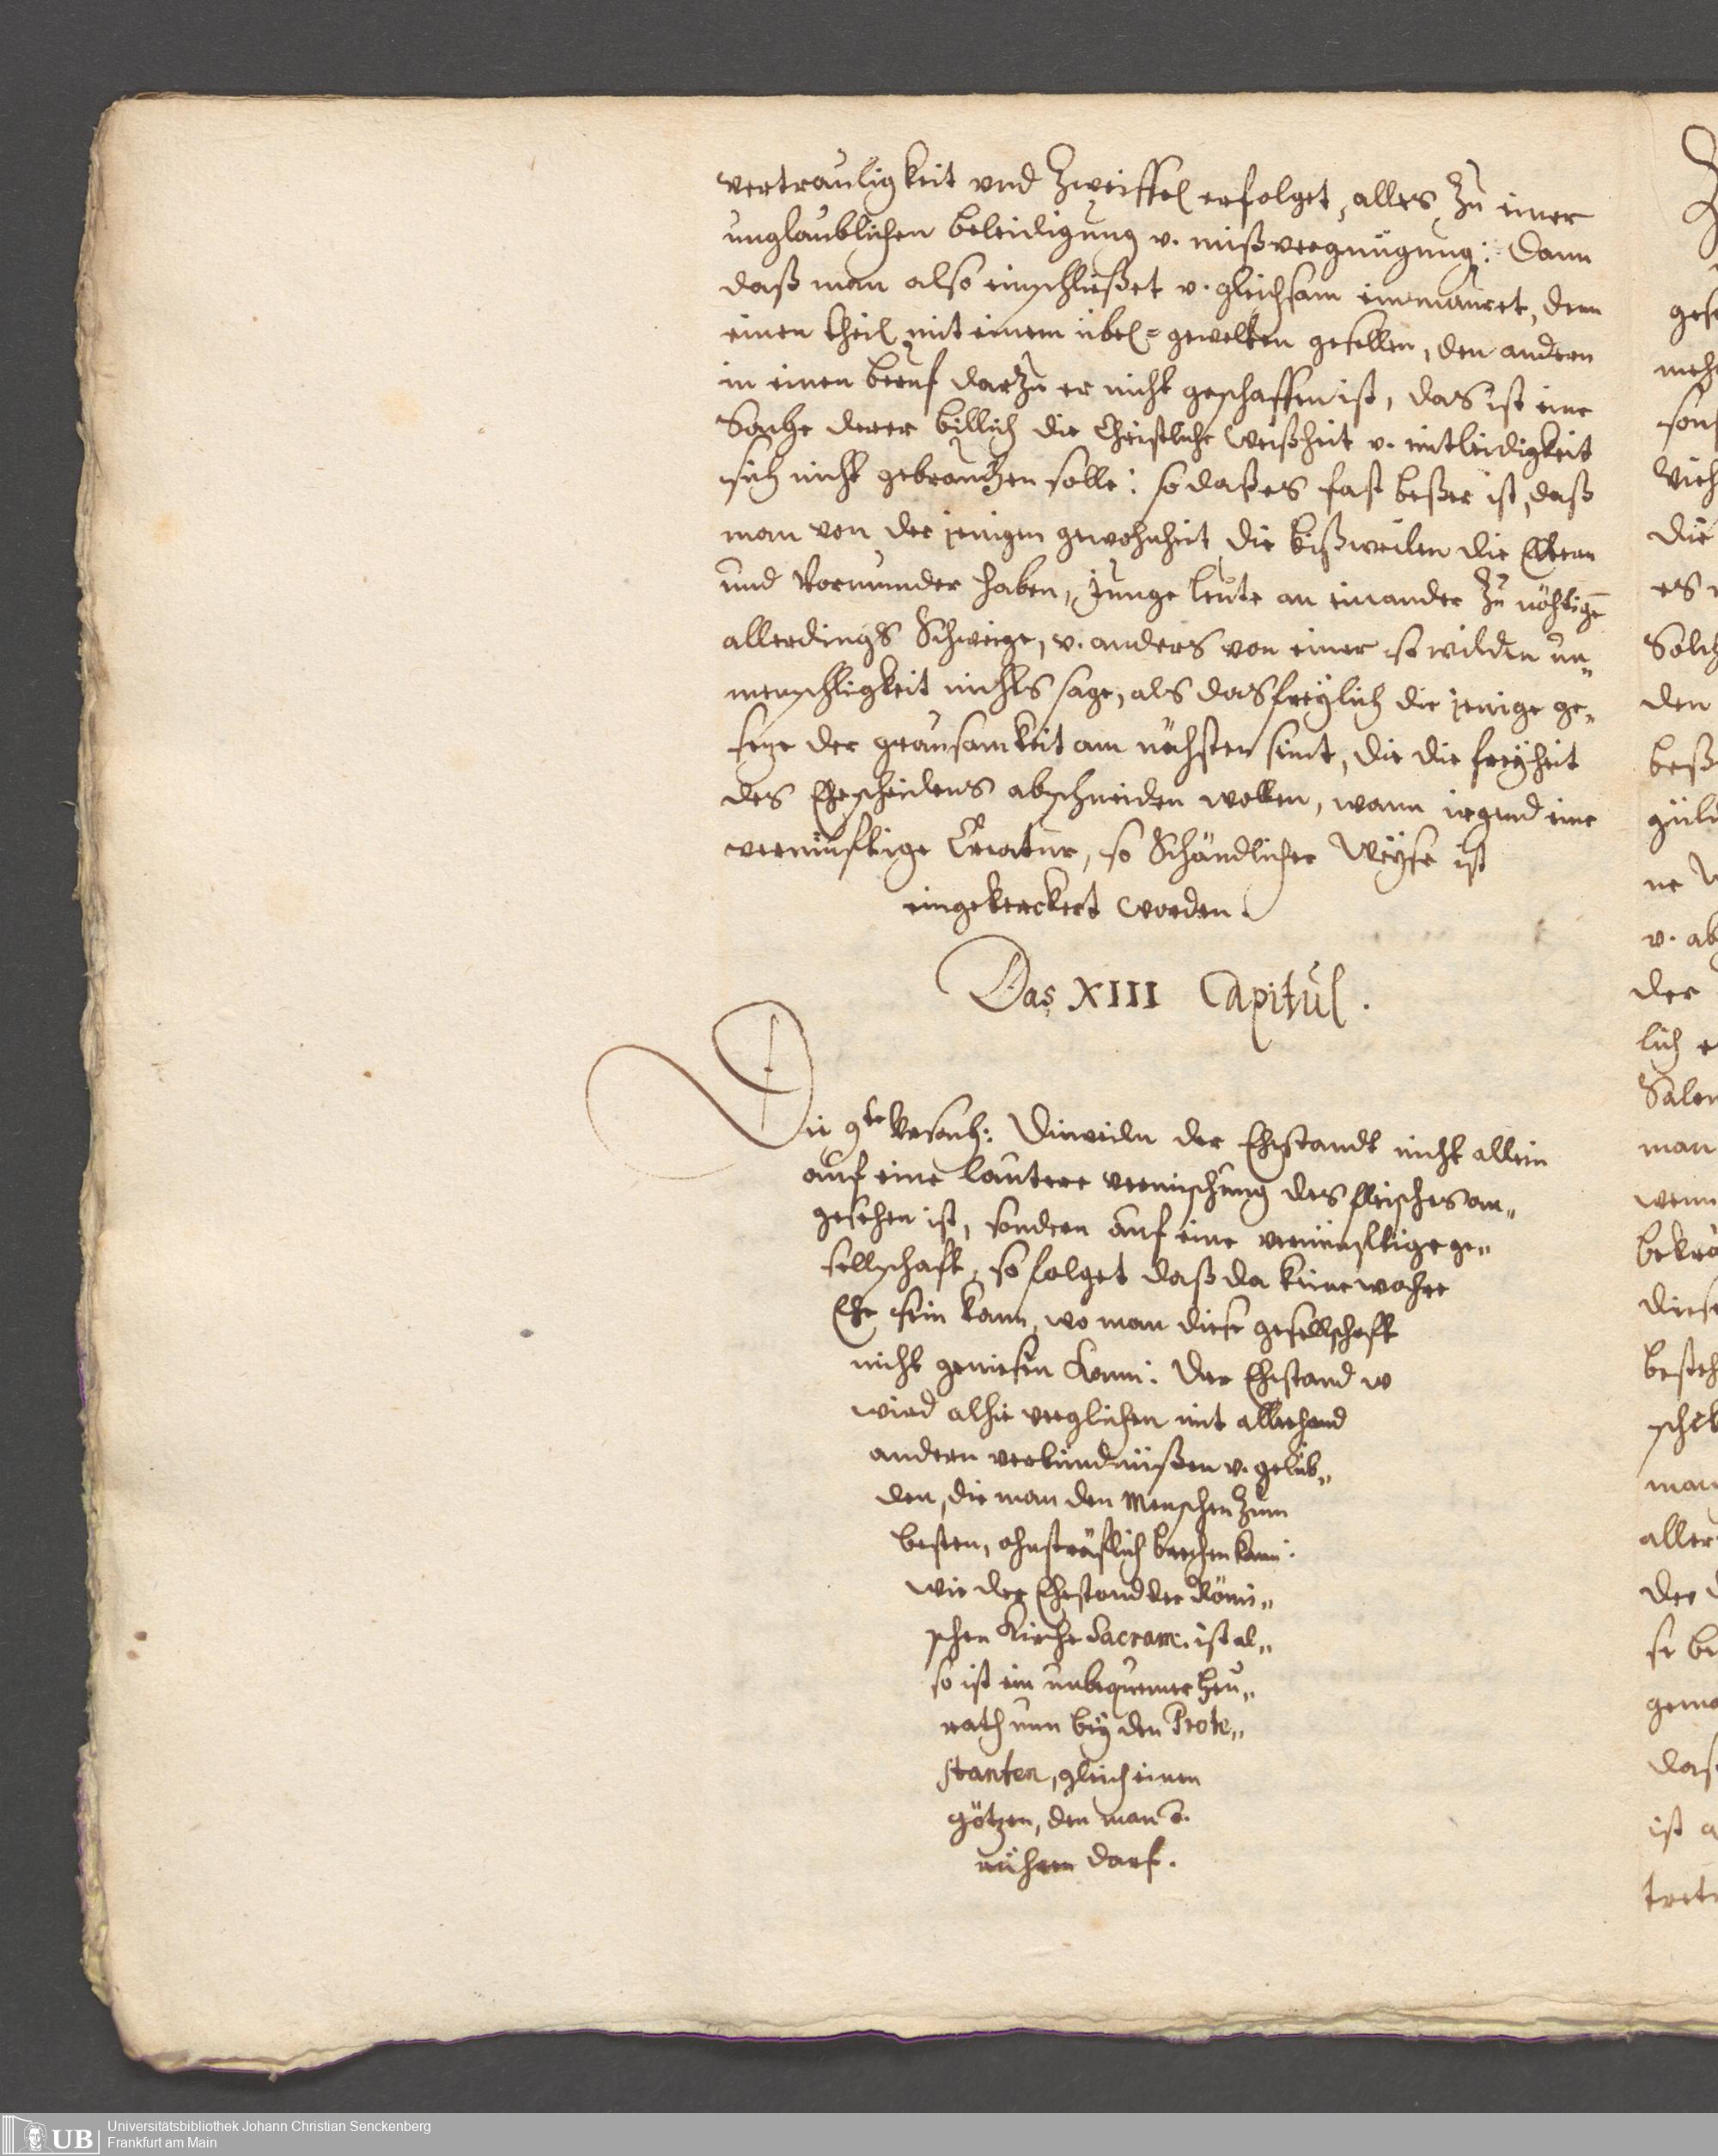 vertrauligkeit vnd Zweiffel erfolget, alles zu einer
unglaublichen beleidigung v. mißvergnügung: Dann
daß man also einschließet v. gleichsam einmauret, den
einen theil mit einem übel=gewelten gesellen, den andern
in einen beruf darzu er nicht geschaffen ist, das ist eine
Sache derer billich die Christliche Weißheit v. mitleidigkeit
sich nicht gebrauchen solle: so daß es fast beßer ist, daß
man von der jenigen gewohnheit die bißweilen die Eltern
und Vormunder haben, junge leute an einander zu nöhtigē
allerdings Schweige, v. anders von einer so wilden un„
menschligkeit nichts sage, als das freylich die jenige ge„
seze der grausamkeit am nechsten sint, die die freyheit
des Ehescheidens abschneiden wollen, wann irgend eine
vernünftige Creatur, so Schändlicher Weyse ist
eingekerckert worden.
Das XIII Capitul.
Die 9te Vrsach: Dieweiln der Ehestandt nicht allein
auf eine lautere vermischung des fleisches an„
gesehen ist, sondern auf eine vernünftige ge„
sellschaft, so folget daß da keine wahre
Ehe sein kann, wo man diese gesellschafft
nicht geniesen kann: Der Ehestand w
wird alhie verglichen mit allerhand
andern verbündnüßen v. gelüb„
den, die man den Menschen zum
besten, ohnsträflich brechen kann.
wie der Ehestand der Römi„
schen Kirche Sacram. ist al„
so ist ein unbequemer heu„
rath nun bey den Prote„
stanten, gleich einen
götzen, den man
rühren darf.
Universitätsbibliothek Johann Christian Senckenberg
Frankfurt am Main
UB